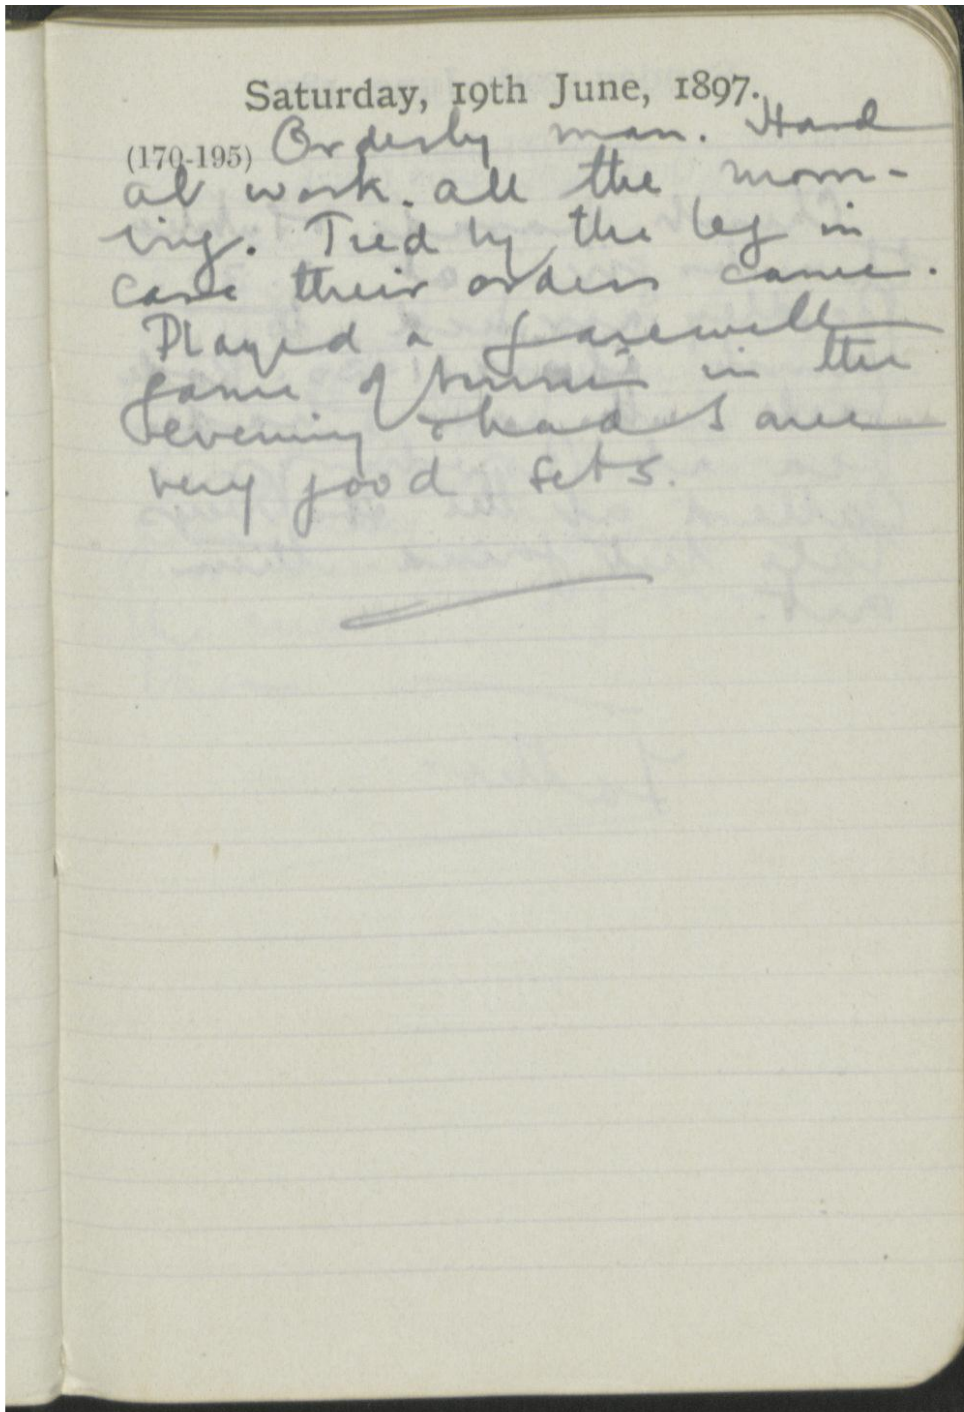 Saturday, 19th June, 1897.
(170-195) Orderly man. Hard
at work. all the morn-
ing. Tied by the leg in
case their orders came.
Played a farewell
game of tennis in the
evening & had
very good sets.